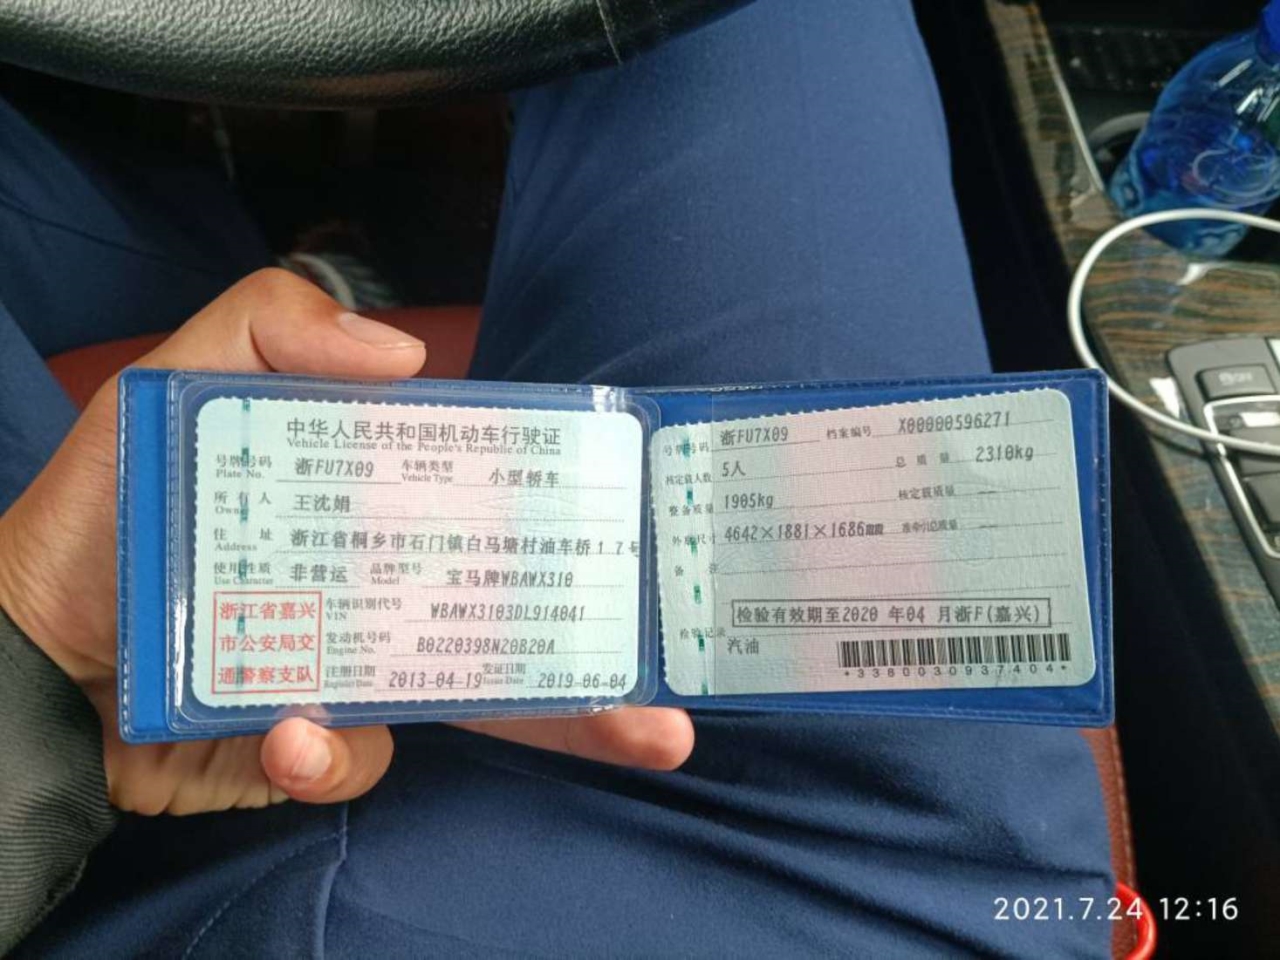 中华人民共和国机动车行驶证
Vehicle License of the People's Republic of China
号牌号码 浙FU7X09 车辆类型 小型轿车
Plate No. Vehicle Type
所有人 王沈娟
Owner
住址 浙江省桐乡市石门镇白马塘村油车桥17号
Address
使用性质 非营运 品牌型号 宝马牌WBAWX310
Use Character Model
浙江省嘉兴
市公安局交
通警察支队
车辆识别代号 WBAWX3103DL914041
VIN
发动机号码 B0220398N20B20A
Engine No.
注册日期 2013-04-19 发证日期 2019-06-04
Register Date Issue Date
号牌号码 浙FU7X09 档案编号 X00000596271
核定载人数 5人 总质量 2310kg
整备质量 1905kg 核定载质量 --
外廓尺寸 4642×1881×1686mm 准牵引总质量 --
备注
检验有效期至2020 年04 月浙F(嘉兴)
检验记录
汽油
*3380030937404*
2021.7.24 12:16